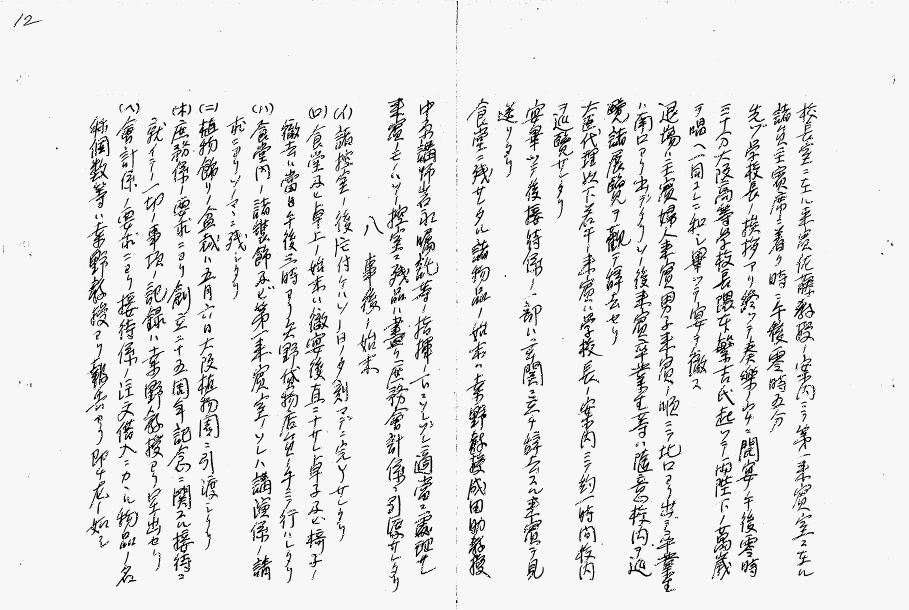 12
校長室ニ在ル来賓佐藤教授ノ案内ニテ第一来賓室ニ在ル
諸員主賓席ニ着ク時ニ午後零時五分
先ヅ学校長ノ挨拶アリ終ツテ奏楽ノ中ニ開宴午後零時
三十分大阪高等学校長隈本繁吉氏起ツテ両陛下ノ萬歳
ヲ唱ヘ一同之ニ和シ畢ツテ宴ヲ撤ス
退場ハ主賓婦人来賓男子来賓ノ順ニテ北口ヨリ出デ卒業生
ハ南口ヨリ出デタリソノ後来賓卒業生等ハ随意校内ヲ巡
覧諸展覧ヲ観テ辞去セリ
大臣代理以下若干ノ来賓ハ学校長ノ案内ニテ約一時間校内
ヲ巡覧サレタリ
宴畢ツテ後接待係ノ一部ハ玄関ニ立チ辞去スル来賓ヲ見
送リタリ
食堂ニ残サレタル諸物品ノ始末ハ幸野教授成田助教授
中本講師岩永嘱託等ノ指揮ノ下ニソレゾレ適当ニ処理サレ
来賓ノモノハソノ控室ノ残品ハ悉ク庶務会計係ニ引渡サレタリ
八 事後ノ始末
(イ) 諸控室ノ後片付ケハソノ日ノ夕刻マデニ完了サレタリ
(ロ) 食堂及ビ卓上ノ始末ハ撤宴後直ニナサレ卓子及ビ椅子ノ
撤去ハ当日午後三時ヨリ矢野貸物店員ノ手ニテ行ハレタリ
(ハ) 食堂内ノ諸装飾及ビ第一来賓室ノソレハ講演係ノ請
求ニヨリソノママニ残シタリ
(ニ) 植物飾リノ盆栽ハ五月六日大阪植物園ニ引渡シタリ
(ホ) 庶務係ノ要求ニヨリ創立二十五周年記念ニ関スル接待ニ
就イテノ一切ノ事項ノ記録ハ幸野教授ヨリ提出セリ
(ヘ) 会計係ノ要求ニヨリ接待係ノ注文借入ニカカル物品ノ名
称個数等ハ幸野教授ヨリ報告セリ即チ左ノ如シ